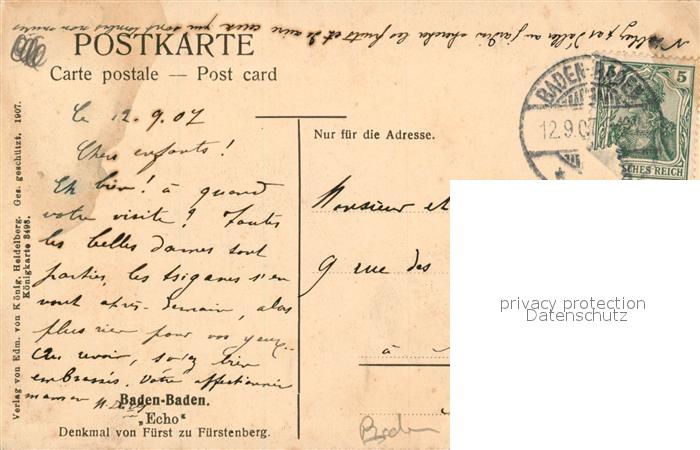 N'oubliez pas d'aller au jardin chercher les fruits et de cuire ceux qui sont tombés non mûrs
POSTKARTE
Carte postale — Post card
BADEN-BADEN
12.9.07
5
SCHES REICH
Nur für die Adresse.
Le 12.9.07
Chers enfants!
Eh bien! à quand
votre visite? Toutes
les belles dames sont
parties, les tsiganes s'en
vont après-demain, alors
plus rien pour vos yeux.
Au revoir, soyez bien
embrassés. Votre affectionnée
maman
Monsieur et
9 rue des
à
Verlag von Edm. von König, Heidelberg. Ges. geschützt. 1907.
Königkarte 8498.
Baden-Baden.
„Echo"
Denkmal von Fürst zu Fürstenberg.
privacy protection
Datenschutz
Baden